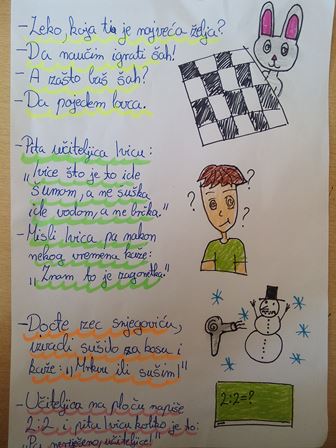 -Zeko, koja ti je najveća želja?
-Da naučim igrati šah!
-A zašto baš šah?
-Da pojedem lovca.
-Pita učiteljica Ivicu:
"Ivice što je to ide
šumom, a ne šuška
ide vodom, a ne brčka."
-Misli Ivica pa nakon
nekog vremena kaže:
"Znam to je zagonetka."
-Dođe zec snjegoviću,
izvadi sušilo za kosu i
kaže: "Mrkvu ili sušim!"
-Učiteljica na ploču napiše
2:2 i pita Ivicu koliko je to:
"Pa neriješeno, učiteljice!"
? ? ?
2:2=?